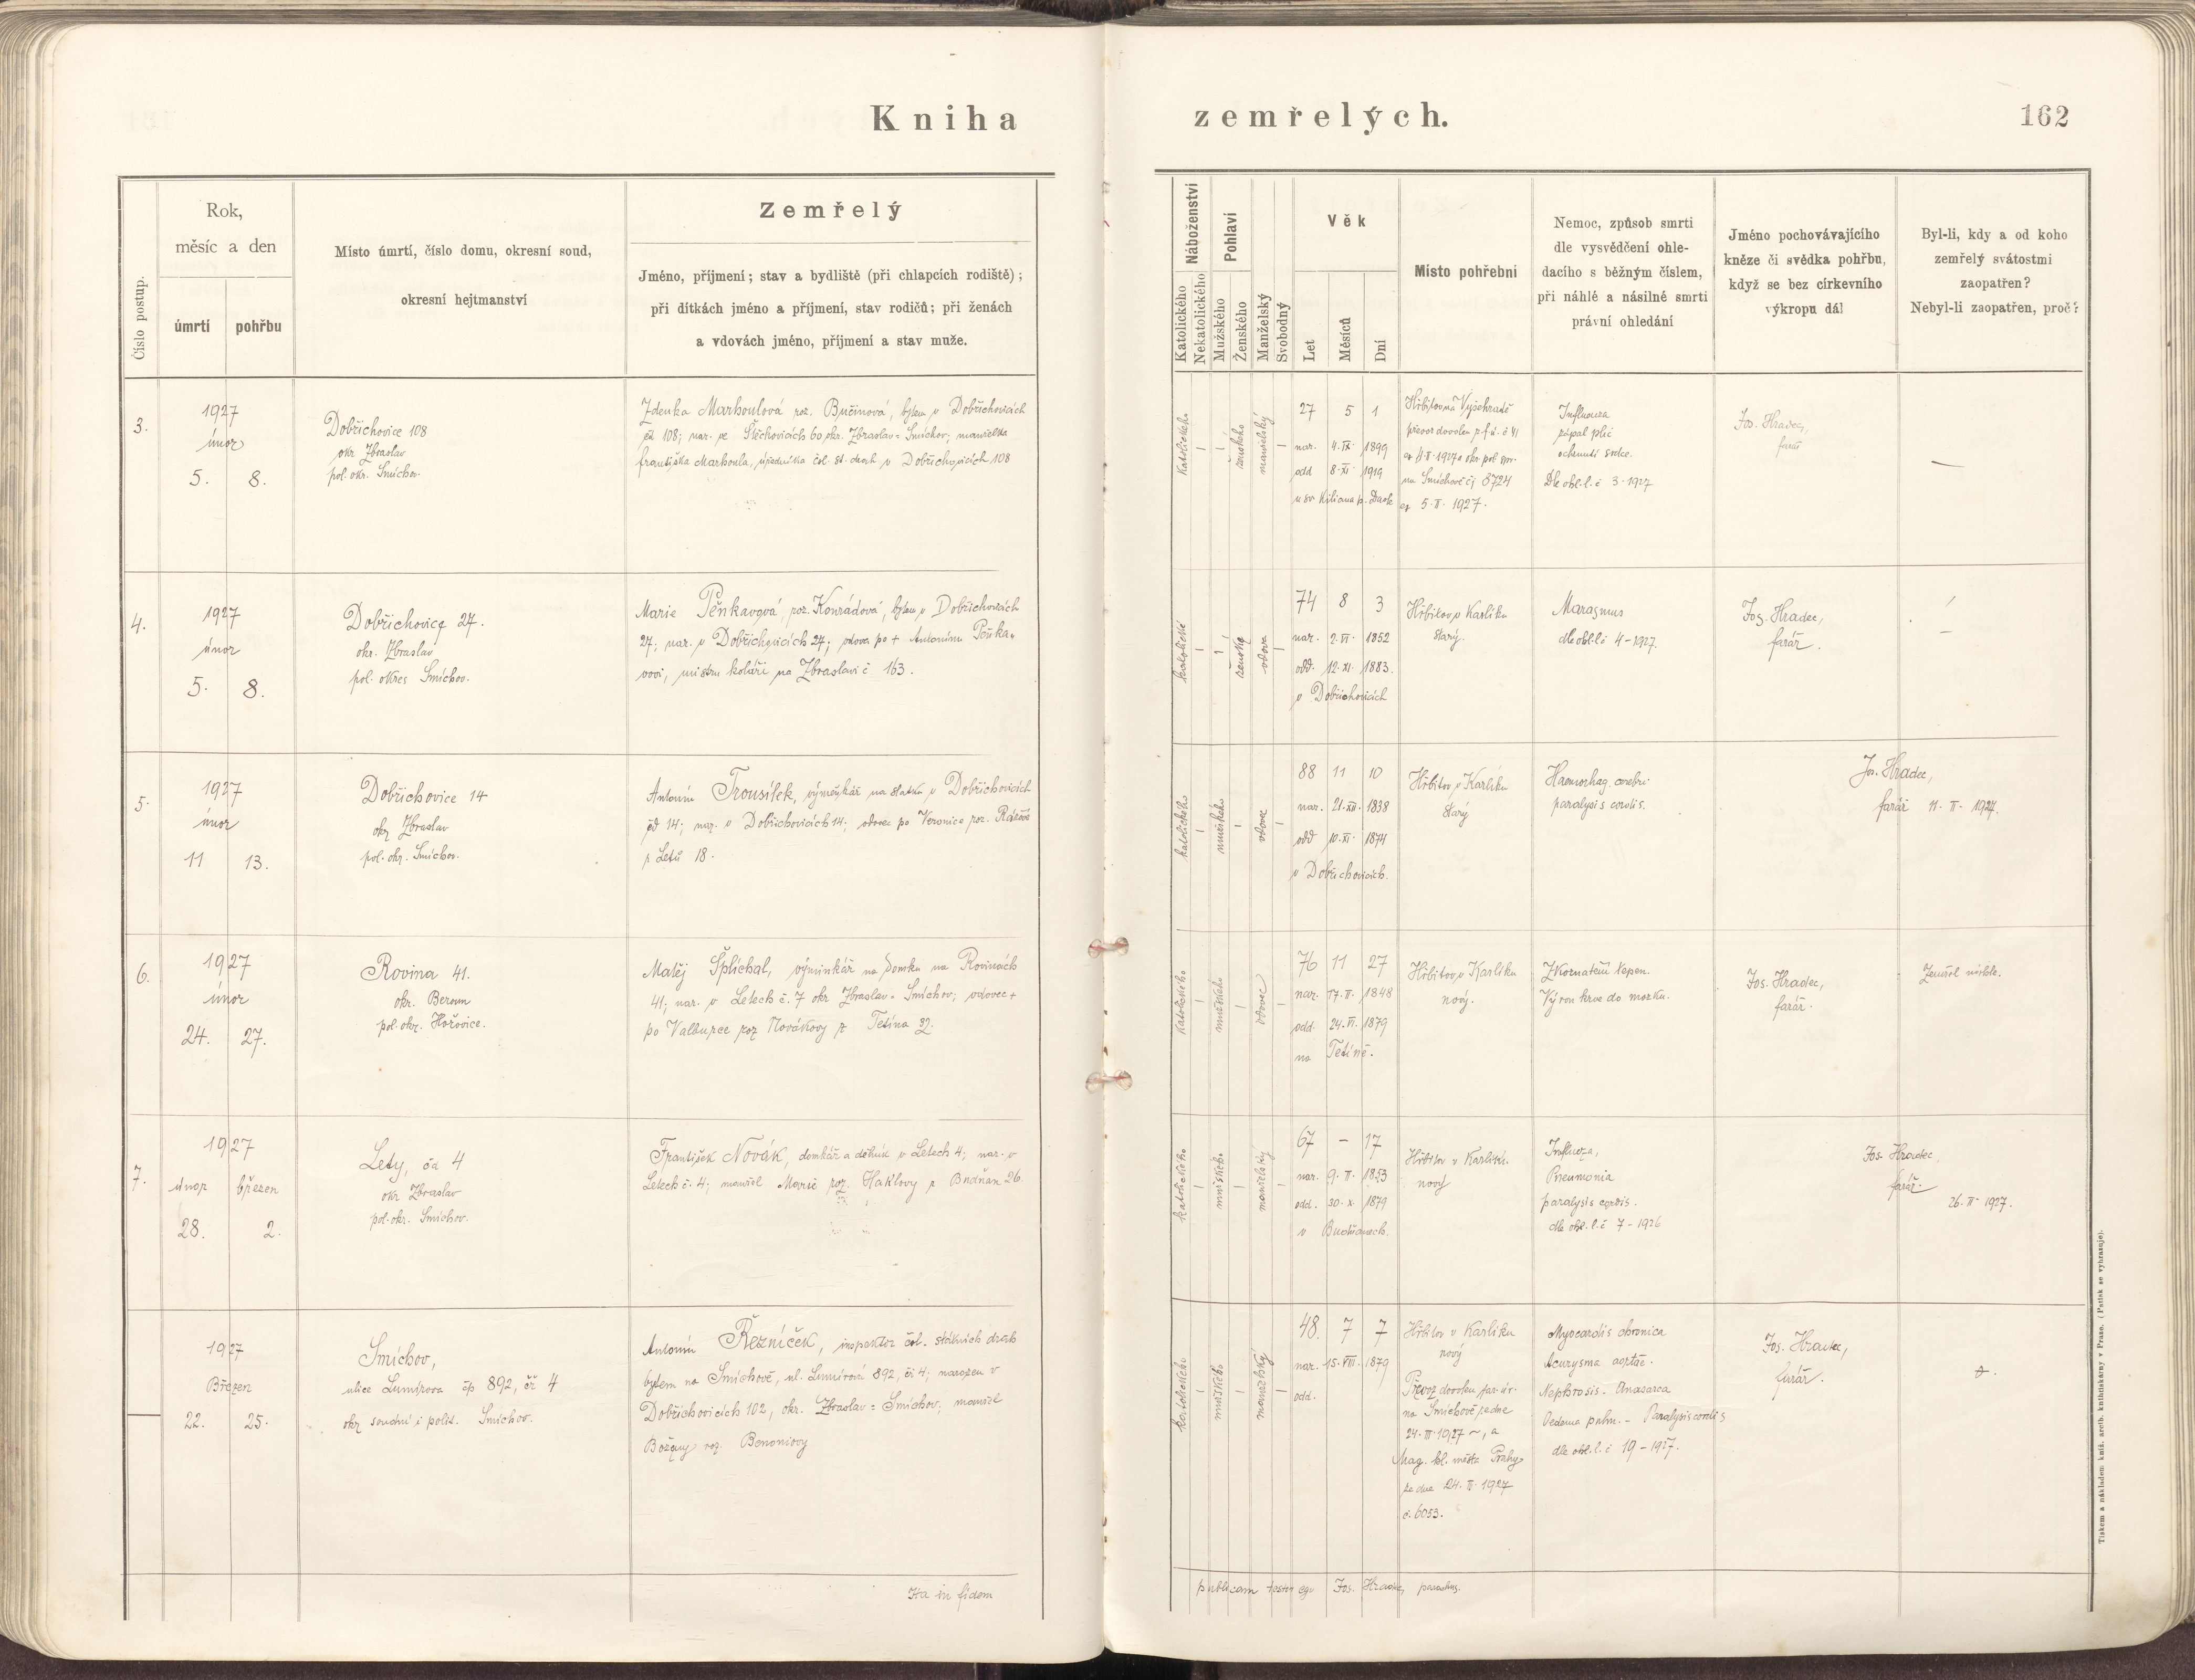 Kniha zemřelých.
162
Číslo postup.
Rok,
měsíc a den
úmrtí
pohřbu
Místo úmrtí, číslo domu, okresní soud,
okresní hejtmanství
Zemřelý
Jméno, příjmení; stav a bydliště (při chlapcích rodiště);
při dítkách jméno a příjmení, stav rodičů; při ženách
a vdovách jméno, příjmení a stav muže.
Náboženství
Katolického
Nekatolického
Pohlaví
Mužského
Ženského
Manželský
Svobodný
Věk
Let
Měsíců
Dní
Místo pohřební
Nemoc, způsob smrti
dle vysvědčení ohle-
dacího s běžným číslem,
při náhlé a násilné smrti
právní ohledání
Jméno pochovávajícího
kněze či svědka pohřbu,
když se bez církevního
výkropu dál
Byl-li, kdy a od koho
zemřelý svátostmi
zaopatřen?
Nebyl-li zaopatřen, proč?
3.
1927
únor
5. 8.
Dobřichovice 108
okr Zbraslav
pol. okr. Smíchov.
Zdenka Marhoulová roz. Bučinová, bytem v Dobřichovicích
čd 108; nar. ve Štěchovicích 60 okr. Zbraslav = Smíchov; manželka
Františka Marhoula, úředníka čsl. st. drah v Dobřichovicích 108
katolického
ženského
manželský
27 5 1
nar. 4. IX. 1899
odd 8. XI. 1919
u sv Kiliana p. Davle
Hřbitov na Vyšehradě
na Smíchově čj 8724
5. II. 1927.
Influenza
zápal plic
ochrnutí srdce.
Dle ohl. l. č 3. 1927
Jos. Hradec,
farář
—
4.
1927
únor
5. 8.
Dobřichovice 27.
okr. Zbraslav
pol. okres Smíchov.
Marie Pěnkavová, roz. Konrádová, bytem v Dobřichovicích
27; nar. v Dobřichovicích 27; vdova po + Antonínu Pěnka-
vovi, mistru koláři na Zbraslavi č 163.
katolické
ženské
vdova
74 8 3
nar. 2. VI. 1852
odd. 12. XI. 1883.
v Dobřichovicích
Hřbitov v Karlíku
starý.
Marasmus
dle ohl. l. č 4 - 1927.
Jos. Hradec,
farář.
—
5.
1927
únor
11 13.
Dobřichovice 14
okr Zbraslav
pol. okr. Smíchov.
Antonín Trousílek, výměnkář na statku v Dobřichovicích
čd 14; nar. v Dobřichovicích 14; vdovec po Veronice roz.
z Letů 18.
katolického
mužského
vdovec
88 11 10
nar. 21. XII. 1838
odd 10. XI. 1874
v Dobřichovicích.
Hřbitov v Karlíku
starý
Haemorhag. cerebri
paralysis cordis.
Jos. Hradec,
farář 11. II. 1927.
6.
1927
únor
24. 27.
Rovina 41.
okr. Beroun
pol. okr. Hořovice.
Matěj Šplíchal, výminkář na domku na Rovinách
41; nar. v Letech č. 7 okr Zbraslav = Smíchov; vdovec +
po Valburze roz Novákovy z Tetína 32.
katolického
mužského
vdovec
76 11 27
nar. 17. II. 1848
odd. 24. VI. 1879
na Tetíně.
Hřbitov v Karlíku
nový.
Zkornatění tepen.
Výron krve do mozku.
Jos. Hradec,
farář.
Zemřel náhle.
7.
1927
únor březen
28. 2.
Lety, čd 4
okr Zbraslav
pol. okr. Smíchov.
František Novák, domkář a dělník v Letech 4; nar. v
Letech č. 4; manžel Marie roz. Haklovy z Budňan 26.
katolického
mužského
manželský
67 — 17
nar. 9. II. 1853
odd. 30. X. 1879
v Budňanech.
Hřbitov v Karlíku
nový
Influenza,
Pneumonia
paralysis cordis.
dle ohl. l. č 7 - 1926
Jos. Hradec,
farář.
26. II. 1927.
1927
Březen
22. 25.
Smíchov,
ulice Lumírova čp 892, čř 4
okr soudní i polit. Smíchov.
Antonín Řezníček, inspektor čsl. státních drah
bytem na Smíchově, ul. Lumírova 892, čř 4; narozen v
Dobřichovicích 102, okr. Zbraslav = Smíchov; manžel
Boženy roz. Benoniovy
katolického
mužského
manželský
48. 7 7
nar. 15. VIII. 1879
odd.
Hřbitov v Karlíku
nový
Převoz dovolen far. úř.
na Smíchově ze dne
24. III. 1927 ~, a
Mag. hl. města Prahy
ze dne 24. III. 1927
č. 6053.
Myocardis chronica
Acurysma aortae.
Nephrosis. Anazarca
Oedema pulm. - Paralysis cordis
dle ohl. l. č 19 - 1927.
Jos. Hradec,
farář.
Ita in fidem
publicam testor ego Jos. Hradec, parochus.
Tiskem a nákladem kníž. arcib. knihtiskárny v Praze. (Patisk se vyhrazuje).